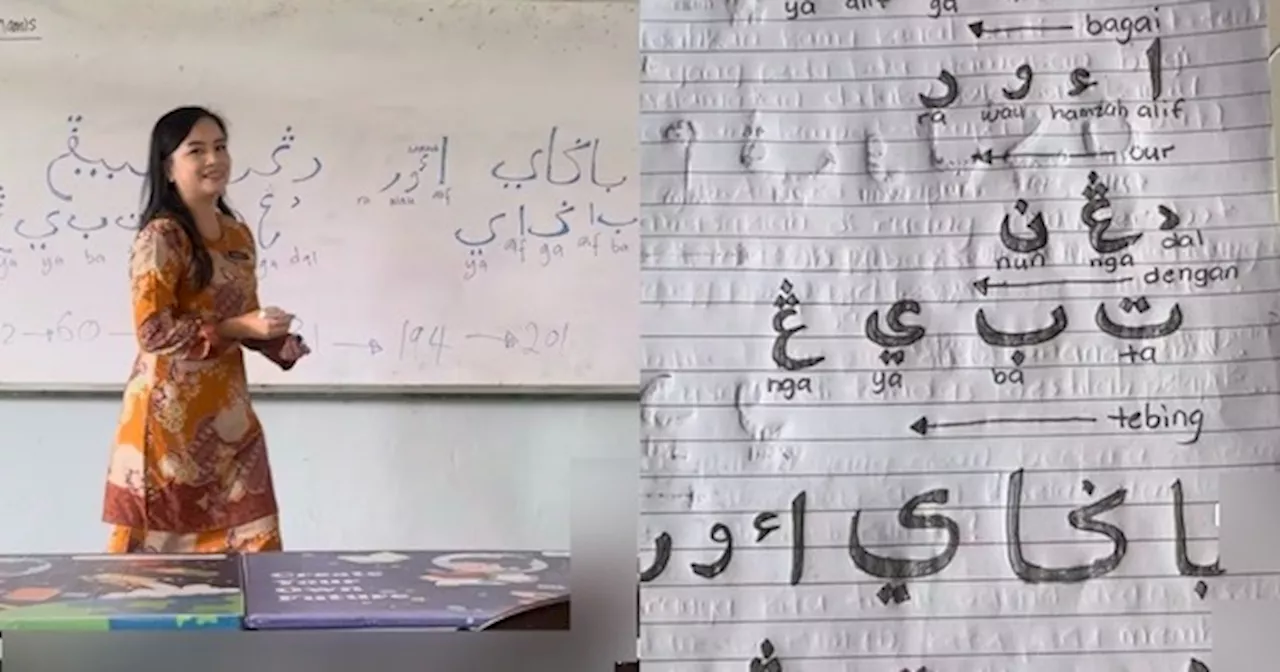 باݢاي اءور دڠن
د ڠ
ب ا ݢ ا ي
ي ب
ra wau alif
nga dal
ya alif ga alif ba
ya ya ba
60 → → 194 → 201
Create
Your
Own
Future.
ya alif ga
← bagai
ا ء و ر
ra wau hamzah alif
← aur
د ڠ ن
nun nga dal
← dengan
ت ب ي ڠ
nga ya ba ta
← tebing
باݢاي اءور